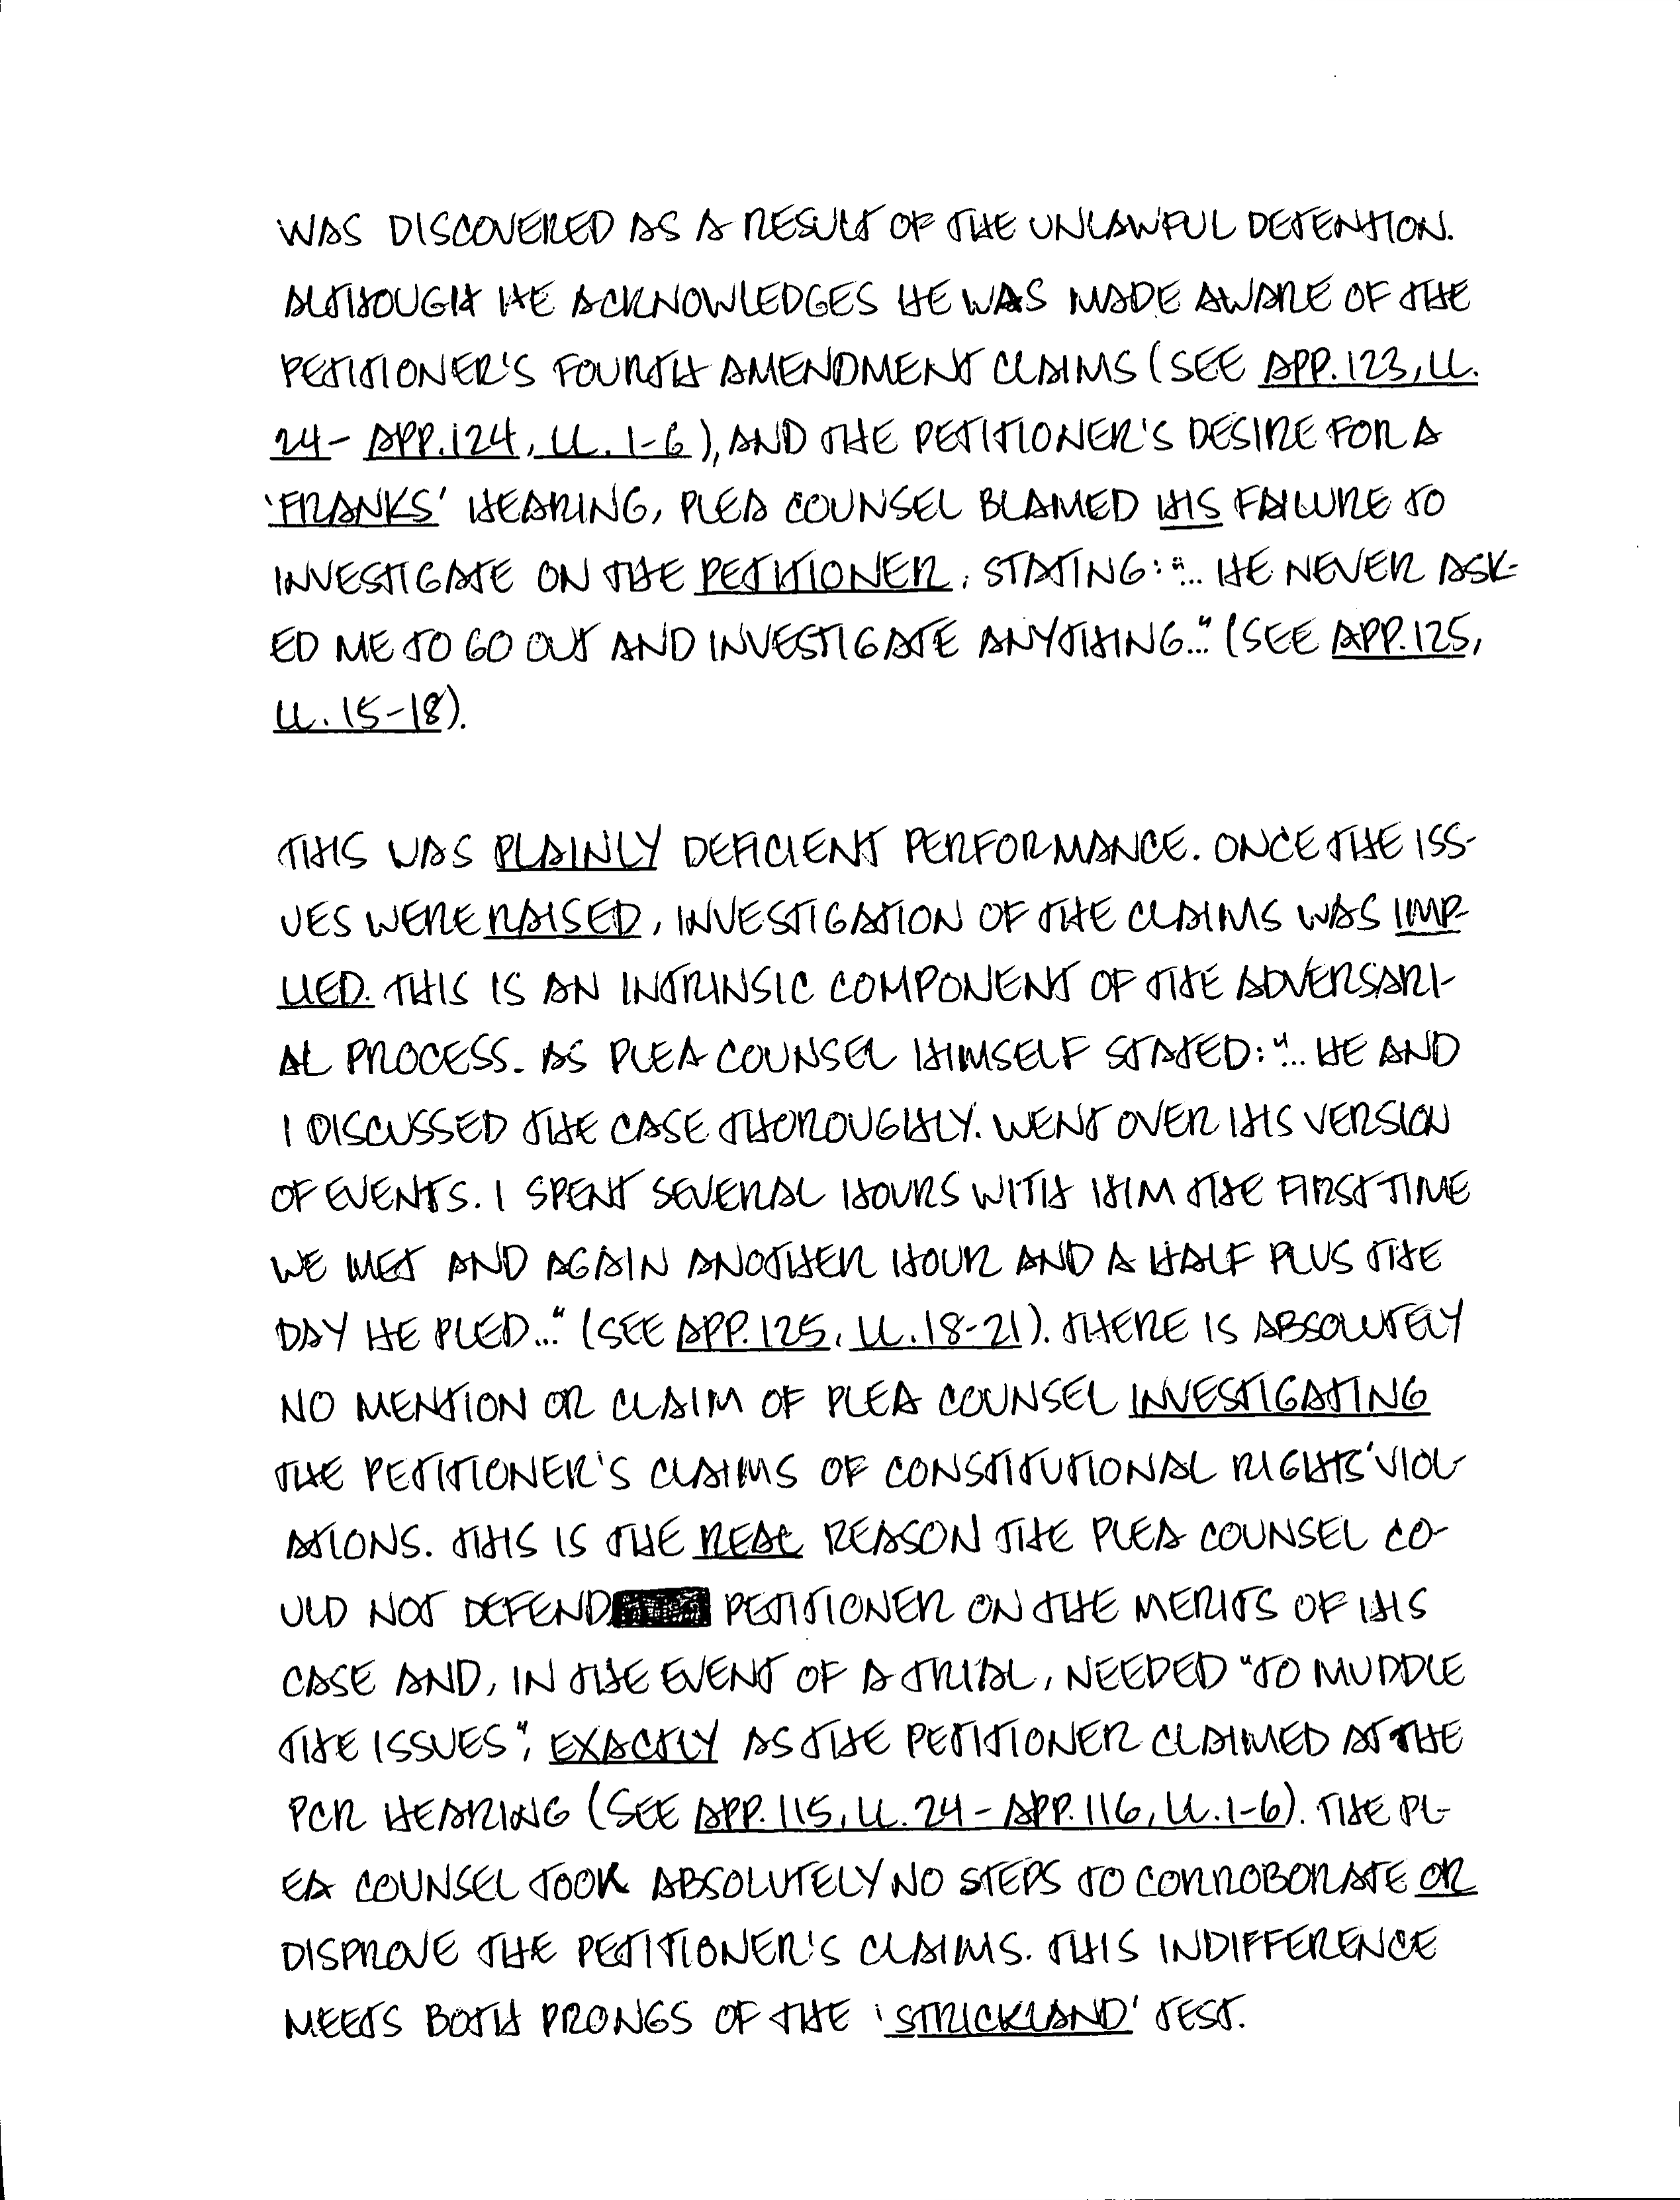 WAS DISCOVERED AS A RESULT OF THE UNLAWFUL DETENTION.
ALTHOUGH HE ACKNOWLEDGES HE WAS MADE AWARE OF THE
PETITIONER'S FOURTH AMENDMENT CLAIMS (SEE APP. 123, LL.
24- APP. 124, LL. 1-6), AND THE PETITIONER'S DESIRE FOR A
'FRANKS' HEARING, PLEA COUNSEL BLAMED HIS FAILURE TO
INVESTIGATE ON THE PETITIONER, STATING: "... HE NEVER ASK-
ED ME TO GO OUT AND INVESTIGATE ANYTHING..." (SEE APP. 125,
LL. 15-18).
THIS WAS PLAINLY DEFICIENT PERFORMANCE. ONCE THE ISS-
UES WERE RAISED, INVESTIGATION OF THE CLAIMS WAS IMP-
LIED. THIS IS AN INTRINSIC COMPONENT OF THE ADVERSARI-
AL PROCESS. AS PLEA COUNSEL HIMSELF STATED: "... HE AND
I DISCUSSED THE CASE THOROUGHLY. WENT OVER HIS VERSION
OF EVENTS. I SPENT SEVERAL HOURS WITH HIM THE FIRST TIME
WE MET AND AGAIN ANOTHER HOUR AND A HALF PLUS THE
DAY HE PLED..." (SEE APP. 125, LL. 18-21). THERE IS ABSOLUTELY
NO MENTION OR CLAIM OF PLEA COUNSEL INVESTIGATING
THE PETITIONER'S CLAIMS OF CONSTITUTIONAL RIGHTS' VIOL-
ATIONS. THIS IS THE REAL REASON THE PLEA COUNSEL CO-
ULD NOT DEFEND PETITIONER ON THE MERITS OF HIS
CASE AND, IN THE EVENT OF A TRIAL, NEEDED "TO MUDDLE
THE ISSUES", EXACTLY AS THE PETITIONER CLAIMED AT THE
PCR HEARING (SEE APP. 115, LL. 24 - APP. 116, LL. 1-6). THE PL-
EA COUNSEL TOOK ABSOLUTELY NO STEPS TO CORROBORATE OR
DISPROVE THE PETITIONER'S CLAIMS. THIS INDIFFERENCE
MEETS BOTH PRONGS OF THE 'STRICKLAND' TEST.